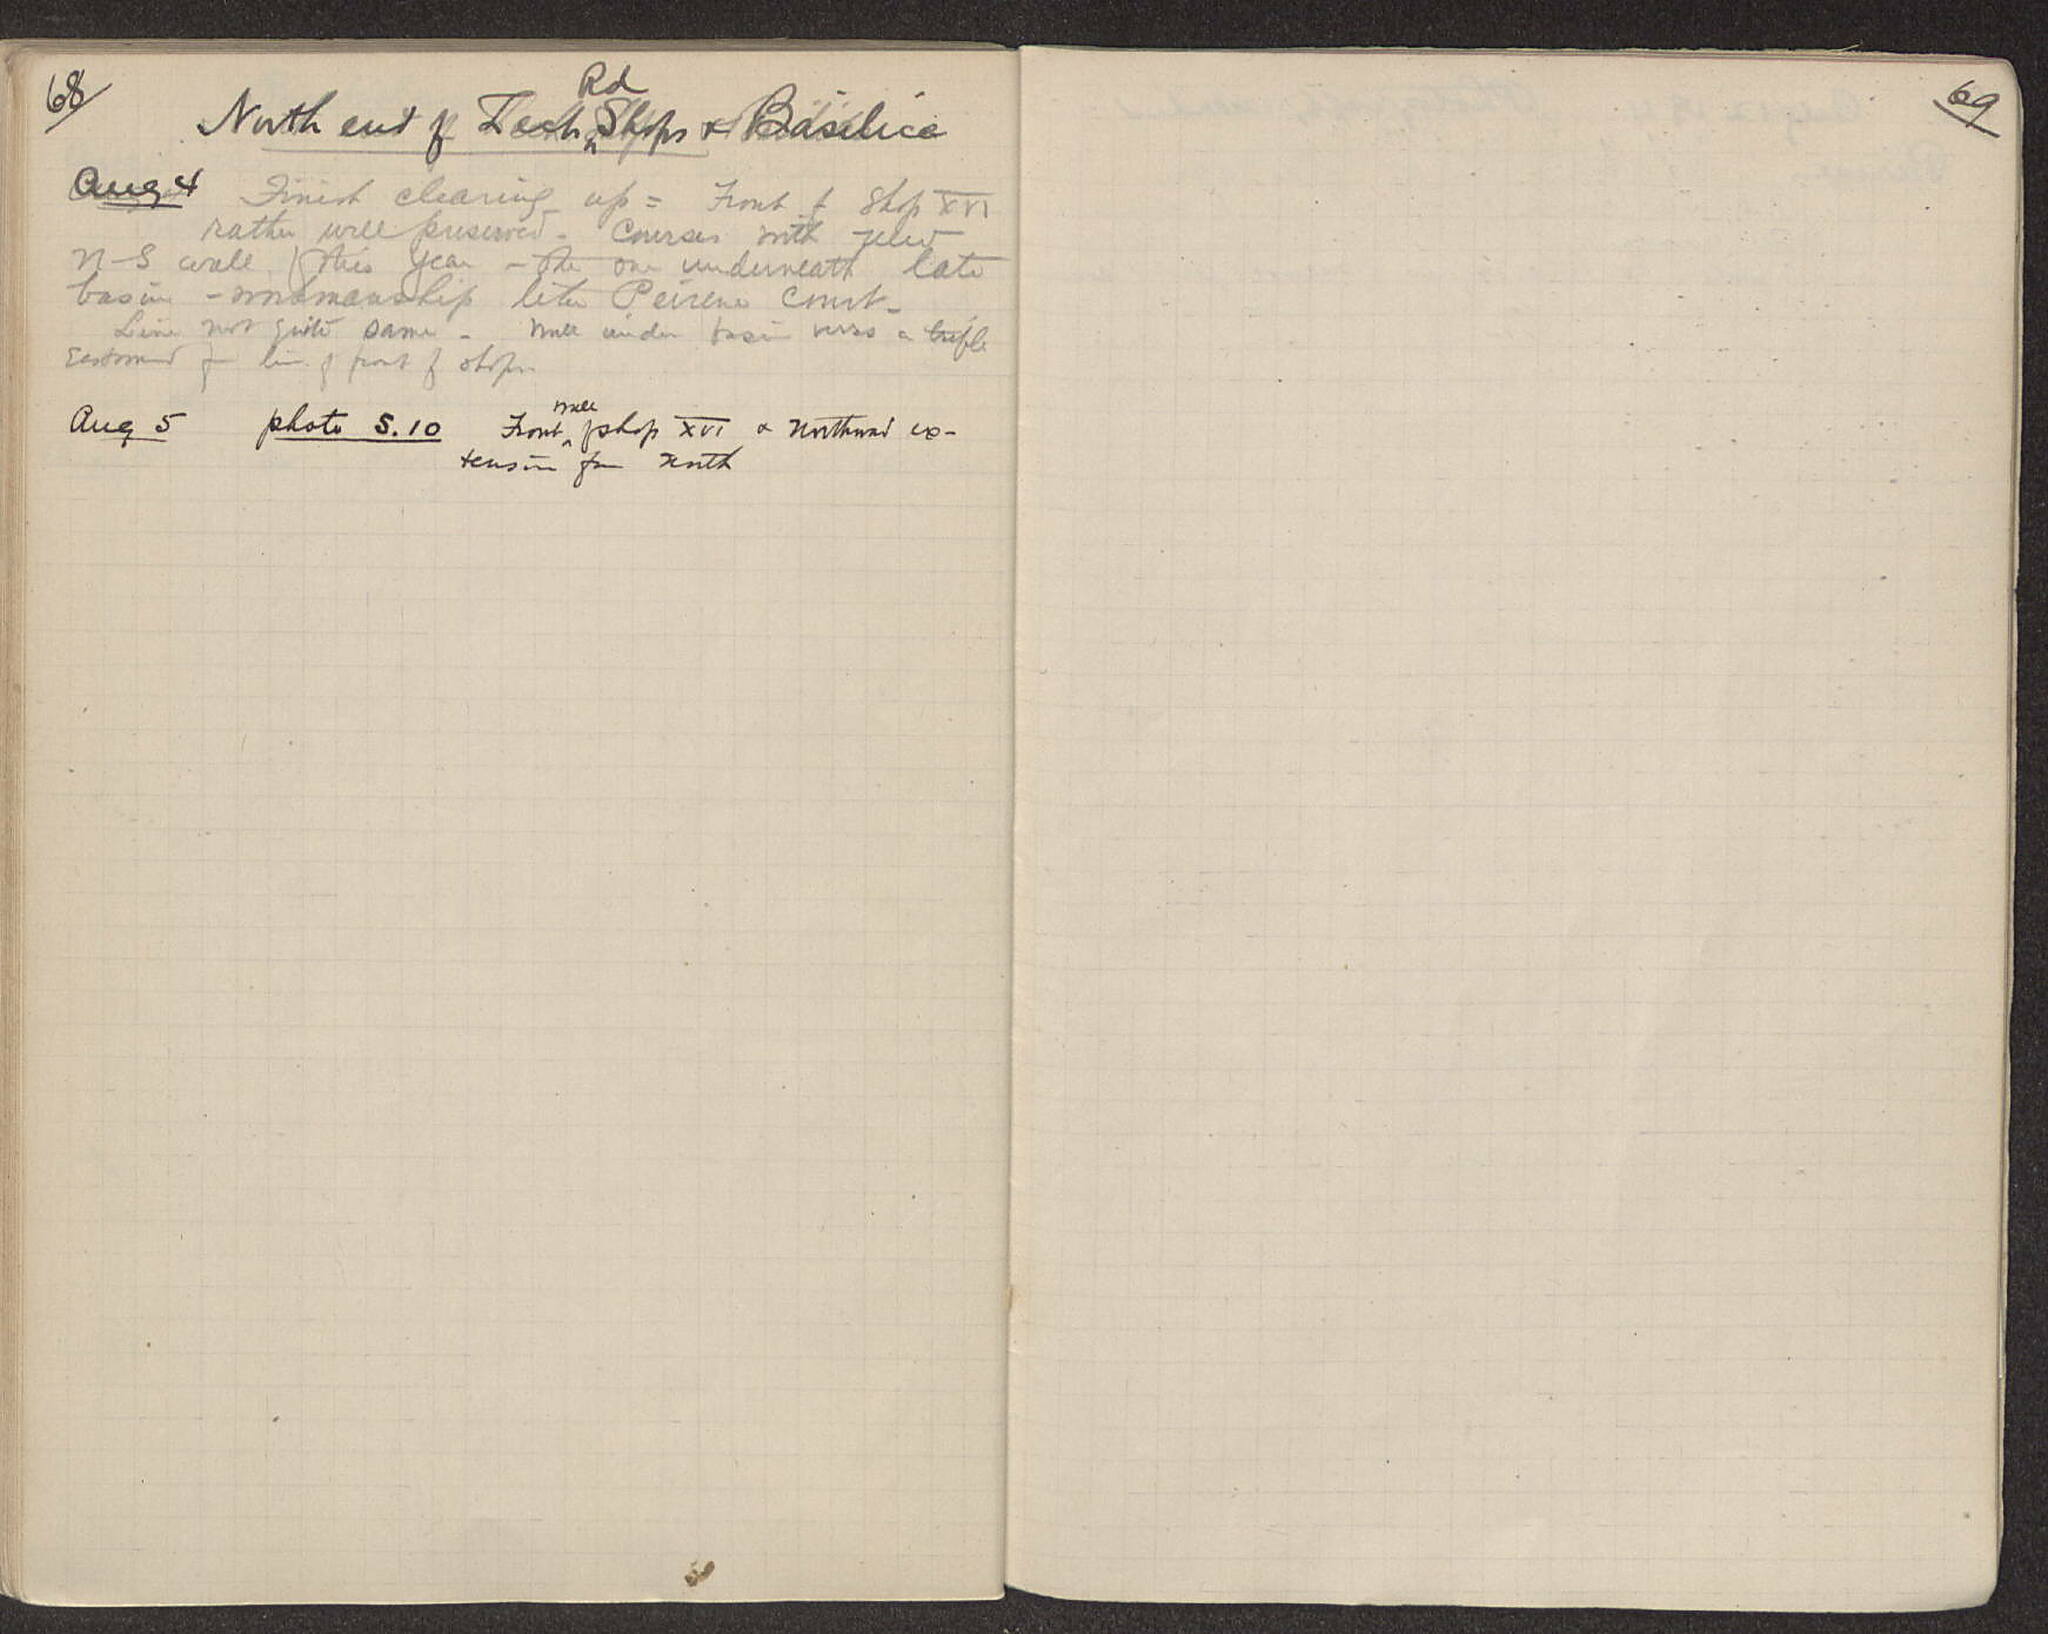 68
North end of Lech. Rd Shops & Basilica
Aug 4 Finish clearing up = Front of Shop XVI
rather well preserved - Courses with
N-S wall of this year - the one underneath late
basin - workmanship like Peirene Court -
Line not quite same - Wall under basin a trifle
Eastward fr line of front of shops
Aug 5 photo S.10 Front wall of shop XVI & northward ex-
tension from north
69